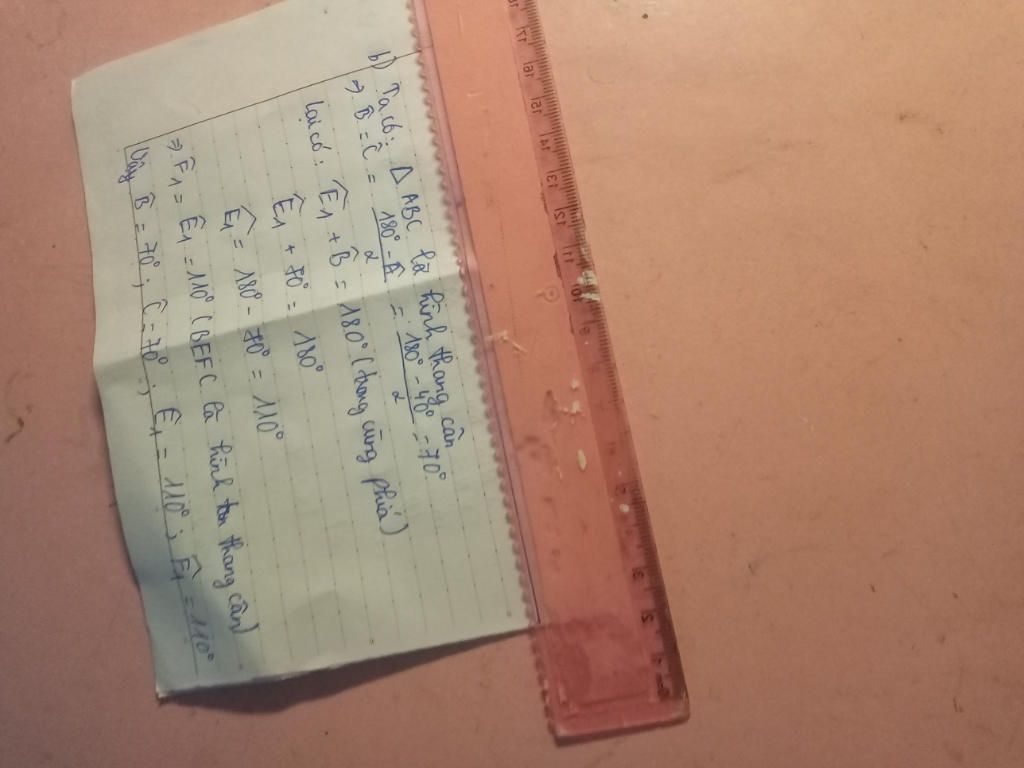 b) Ta có: Δ ABC là hình thang cân
⇒ B̂ = Ĉ = (180° - Â)/2 = (180° - 40°)/2 = 70°
lại có: Ê1 + B̂ = 180° (trong cùng phía)
Ê1 + 70° = 180°
Ê1 = 180° - 70° = 110°
⇒ Ê1 = Ê1 = 110° (BEFC là hình thang cân)
Vậy B̂ = 70° ; Ĉ = 70° ; Ê1 = 110° ; F̂1 = 110°
18
17
16
15
14
13
12
11
10
9
3
2
1